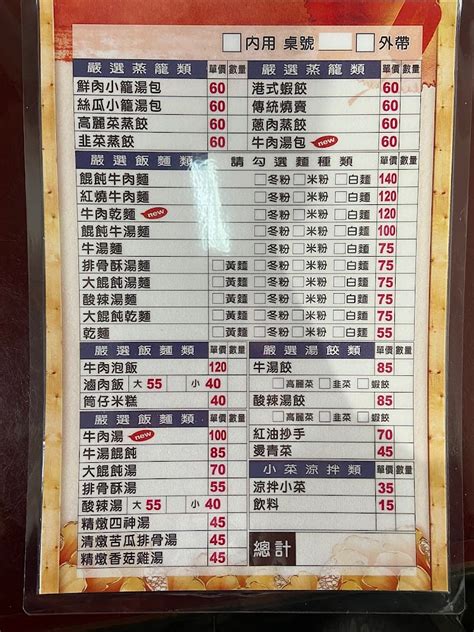 □內用 桌號 □外帶
嚴選蒸籠類 單價 數量 嚴選蒸籠類 單價 數量
鮮肉小籠湯包 60 港式蝦餃 60
絲瓜小籠湯包 60 傳統燒賣 60
高麗菜蒸餃 60 蔥肉蒸餃 60
韭菜蒸餃 60 牛肉湯包 new 60
嚴選飯麵類 請勾選麵種類 單價 數量
餛飩牛肉麵 □冬粉 □米粉 □白麵 140
紅燒牛肉麵 □冬粉 □米粉 □白麵 120
牛肉乾麵 new □冬粉 □米粉 □白麵 120
餛飩牛湯麵 □冬粉 □米粉 □白麵 100
牛湯麵 □冬粉 □米粉 □白麵 75
排骨酥湯麵 □黃麵 □冬粉 □米粉 □白麵 75
大餛飩湯麵 □黃麵 □冬粉 □米粉 □白麵 75
酸辣湯麵 □黃麵 □冬粉 □米粉 □白麵 75
大餛飩乾麵 □黃麵 □冬粉 □米粉 □白麵 75
乾麵 □黃麵 □冬粉 □米粉 □白麵 55
嚴選飯麵類 單價 數量 嚴選湯餃類 單價 數量
牛肉泡飯 120 牛湯餃 85
滷肉飯 大 55 小 40 □高麗菜 □韭菜 □蝦餃
筒仔米糕 40 酸辣湯餃 85
□高麗菜 □韭菜 □蝦餃
嚴選飯麵類 單價 數量
牛肉湯 new 100 紅油抄手 70
牛湯餛飩 85 燙青菜 45
大餛飩湯 70 小菜涼拌類 單價 數量
排骨酥湯 55 涼拌小菜 35
酸辣湯 大 55 小 40 飲料 15
精燉四神湯 45
清燉苦瓜排骨湯 45 總計
精燉香菇雞湯 45